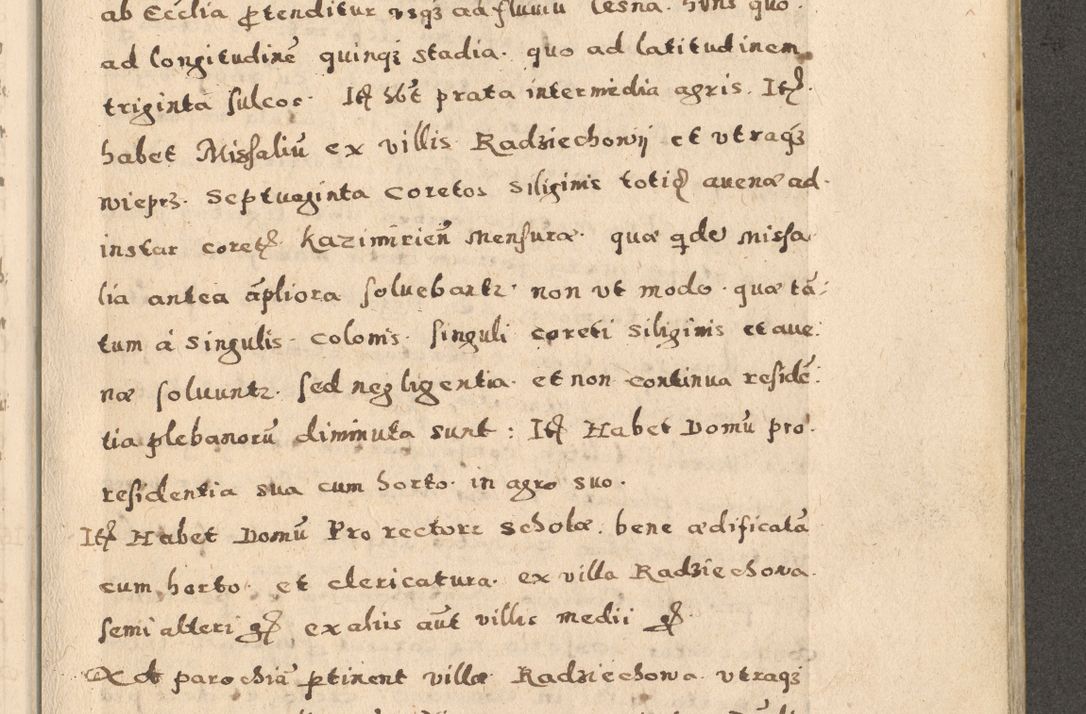 ab Ecclia ꝓtenditur usqȝ ad fluuiū Cesna. huns quo.
ad longitudinē quinqȝ stadia. quo ad latitudinem
triginta sulcos. Itꝫ hēt prata intermedia agris. Itꝫ.
habet Missaliū ex villis Radziechowij et vtraqȝ
wieprz. septuaginta coretos siliginis totiđ auenæ ad.
instar coretꝫ. kazimirien̄ mensuræ. quæ qđe missa
lia antea āpliora soluebantr. non vt modo. quæ tā:
tum à singulis. colonis. singuli coreti siliginis et aue:
næ soluuntr. sed negligentia. et non continua residē:
tia plebanorū diminuta sunt: Itꝫ Habet Domū pro.
residentia sua cum horto. in agro suo.
Itꝫ Habet Domū Pro rectore scholæ. bene ædificatā
cum horto. et clericatura. ex villa Radziechowa.
semi alteri gꝫ ex aliis aūt villis medii gꝫ.
Ad parochiā ꝑtinent villæ Radziechowa. vtraqȝ